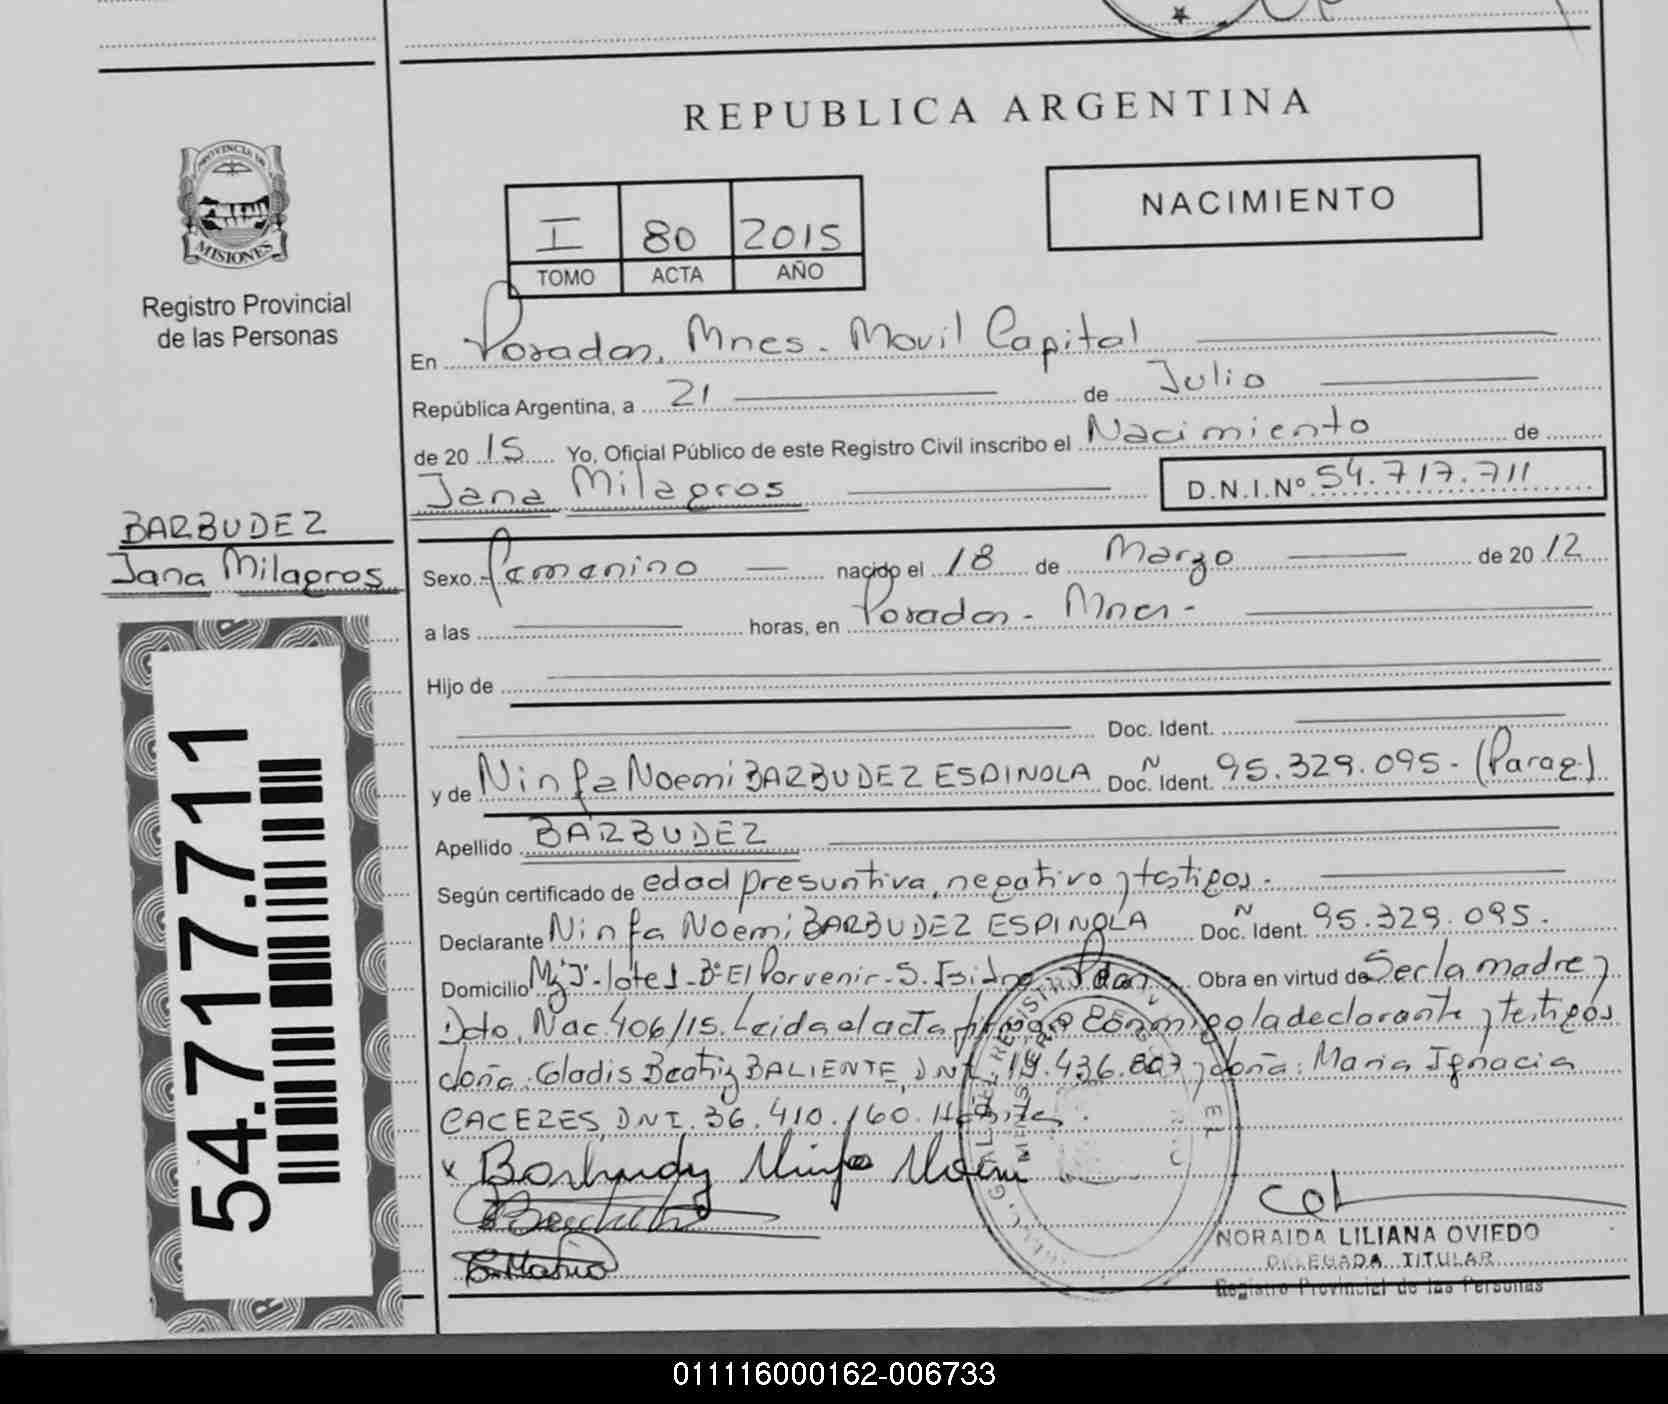 REPUBLICA ARGENTINA
PROVINCIA DE
MISIONES
Registro Provincial
de las Personas
I 80 2015
TOMO ACTA AÑO
NACIMIENTO
En Posadas, Mnes. Movil Capital
República Argentina, a 21 de Julio
de 20 15 Yo, Oficial Público de este Registro Civil inscribo el Nacimiento de
Jana Milagros D.N.I.Nº 54.717.711
BARBUDEZ
Jana Milagros
Sexo Femenino nacido el 18 de Marzo de 20 12
a las horas, en Posadas - Mnes -
Hijo de
Doc. Ident.
y de Ninfa Noemi BARBUDEZ ESPINOLA Doc. N Ident. 95.329.095 - (Parag.)
Apellido BARBUDEZ
Según certificado de edad presuntiva, negativo y testigos -
Declarante Ninfa Noemi BARBUDEZ ESPINOLA Doc. N Ident. 95.329.095.
Domicilio Mz J - lote 1 - Bº El Porvenir - S. Isidro - Pdas Obra en virtud de Ser la madre y
Dcto. Nac. 406/15. Leida el acta firman conmigo la declarante y testigos
doña: Gladis Beatriz BALIENTE, DNI. 19.436.807 y doña: Maria Ignacia
CACERES, DNI. 36.410.160.
x Barbudez Ninfa Noemi
NORAIDA LILIANA OVIEDO
DELEGADA TITULAR
Registro Provincial de las Personas
54.717.711
011116000162-006733